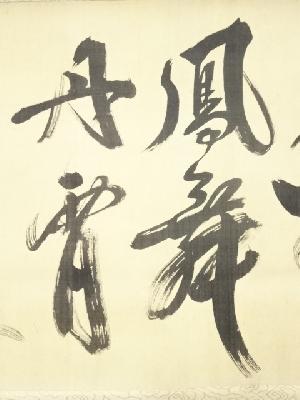 鳳舞
丹霄